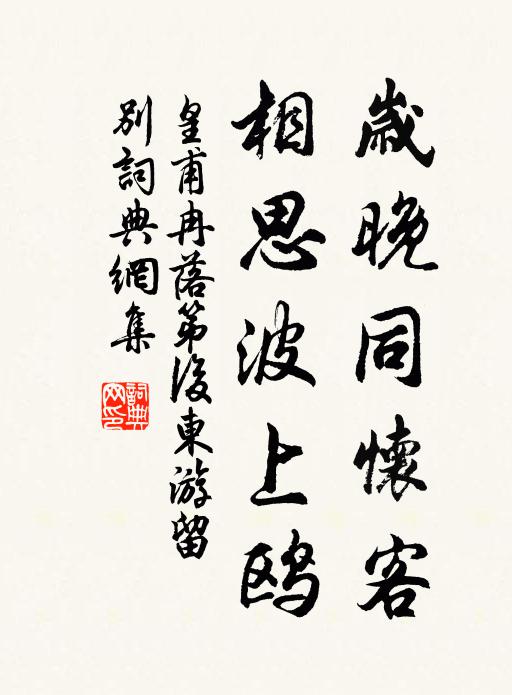 歲晚同懷客
相思波上鸥
皇甫冉落第後東游留
别詞典網集
詞典
网印